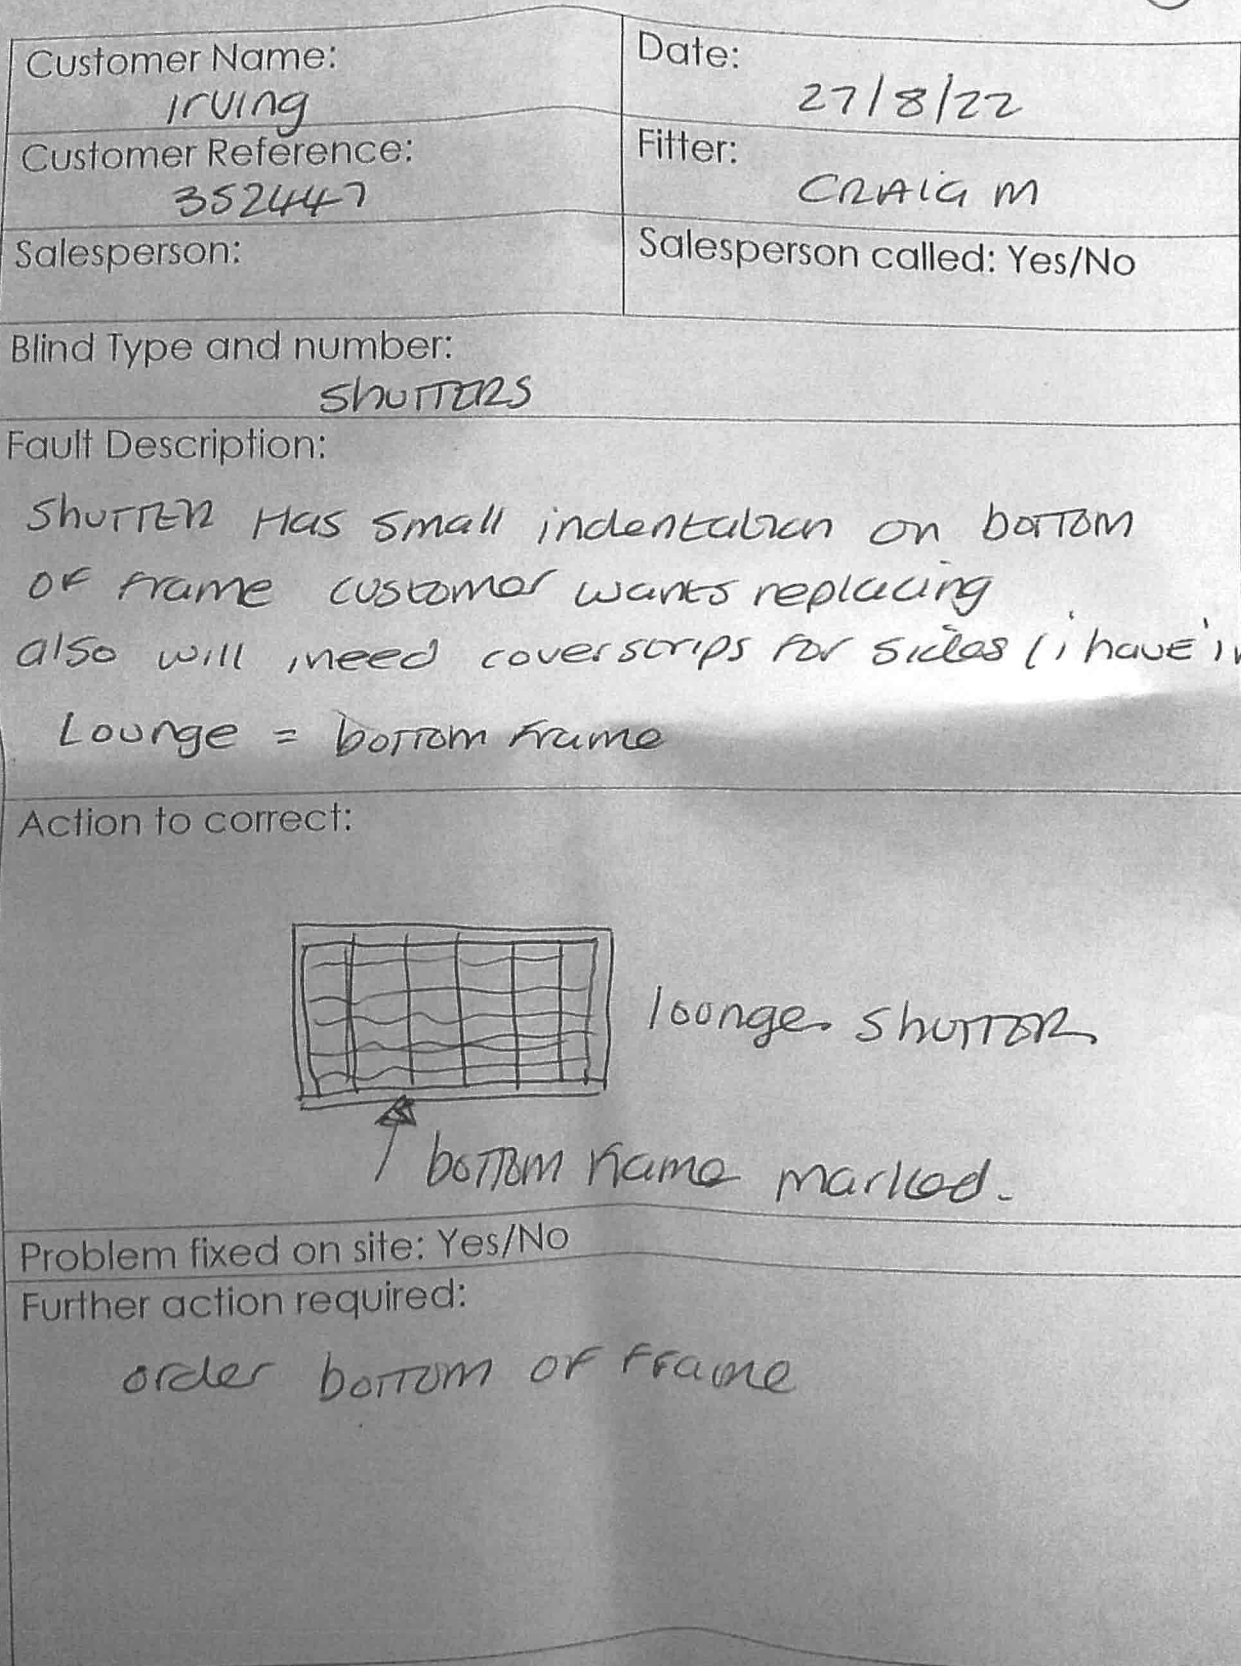 Customer Name:
Irving
Date:
27/8/22
Customer Reference:
352447
Fitter:
CRAIG M
Salesperson:
Salesperson called: Yes/No
Blind Type and number:
ShuTTERS
Fault Description:
ShuTTER Has small indentation on boTTOM
OF Frame customer wants replacing
also will need coverstrips For sides (i have i
Lounge = boTTom Frame
Action to correct:
lounge ShuTTER
boTTom Frame marked.
Problem fixed on site: Yes/No
Further action required:
order boTTom OF Frame